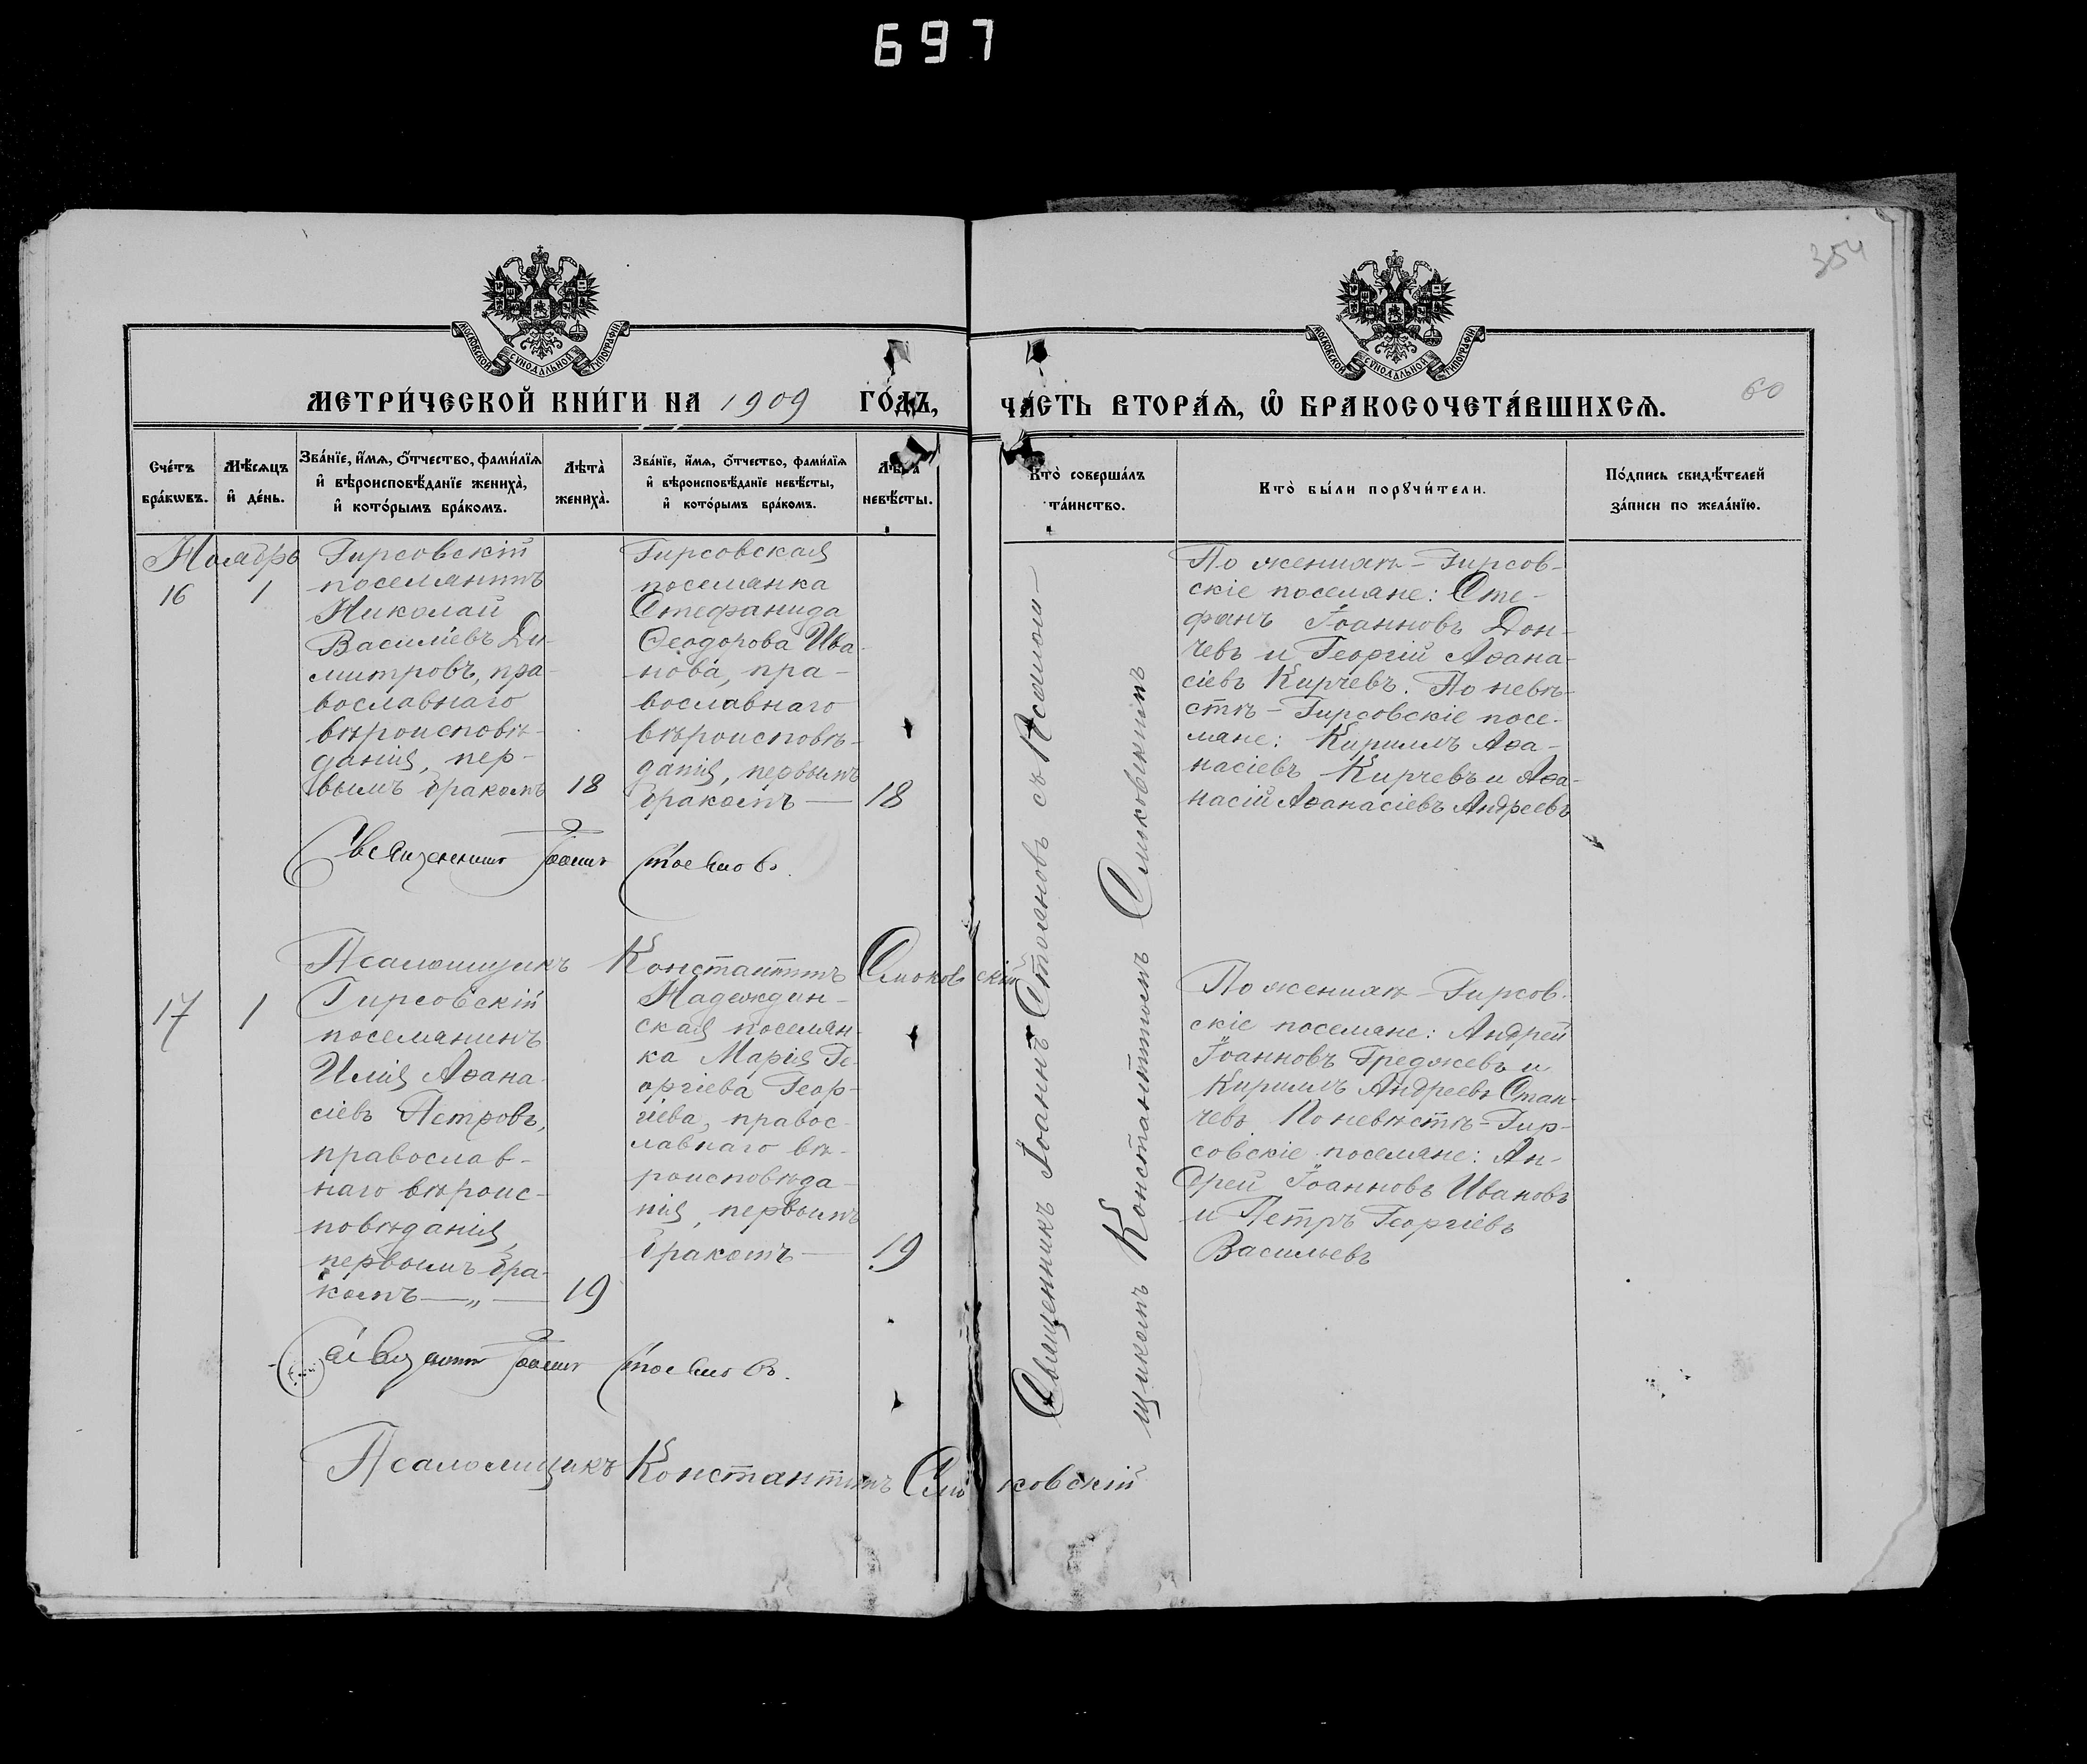 697
354
МОСКОВСКОЙ СУНОДАЛЬНОЙ ТИПОГРАФІИ
МОСКОВСКОЙ СУНОДАЛЬНОЙ ТИПОГРАФІИ
МЕТРИ́ЧЕСКОЙ КНИ́ГИ НА 1909 ГО́ДЪ,
ЧА́СТЬ ВТОРА́Ѧ, Ѡ БРАКОСОЧЕТА́ВШИХСѦ.
60
Сче́тъ
бра́кѡвъ.
Мѣ́сѧцъ
и де́нь.
Зва́нїе, и́мѧ, ѻ́тчество, фами́лїѧ
и вѣроисповѣ́данїе жениха̀,
и кото́рымъ бра́комъ.
Лѣта̀
жениха̀.
Зва́нїе, и́мѧ, ѻ́тчество, фами́лїѧ
и вѣроисповѣ́данїе невѣ́сты,
и кото́рымъ бра́комъ.
Лѣта̀
невѣ́сты.
Кто̀ соверша́лъ
та́инство.
Кто̀ бы́ли порꙋчи́тели.
По́дпись свидѣ́телей
за́писи по жела́нїю.
Ноябрь
16
1
Гирсовскій
поселянинъ
Николай
Василіевъ Ди-
митровъ, пра-
вославнаго
вѣроисповѣ-
данія, пер-
вымъ бракомъ
18
Гирсовская
поселянка
Стефанида
Ѳеодорова Ива-
нова, пра-
вославнаго
вѣроисповѣ-
данія, первымъ
бракомъ —
18
По женихѣ - Гирсов-
скіе поселяне: Сте-
фанъ Іоанновъ Дон-
чевъ и Георгій Аѳана-
сіевъ Кирчевъ. По невѣ-
стѣ - Гирсовскіе посе-
ляне: Кириллъ Аѳа-
насіевъ Кирчевъ и Аѳа-
насій Аѳанасіевъ Андреевъ
Священникъ Іоаннъ Стояновъ.
Псаломщикъ Константинъ Смоковскій
17
1
Гирсовскій
поселянинъ
Илія Аѳана-
сіевъ Петровъ,
православ-
наго вѣроис-
повѣданія,
первымъ бра-
комъ — „ —
19
Надеждин-
ская поселян-
ка Марія Ге-
оргіева Геор-
гіева, правос-
лавнаго вѣ-
роисповѣда-
нія, первымъ
бракомъ —
19
По женихѣ - Гирсов-
скіе поселяне: Андрей
Іоанновъ Греджевъ и
Кириллъ Андреевъ Стан-
чевъ. По невѣстѣ - Гир-
совскіе поселяне: Ан-
дрей Іоанновъ Ивановъ
и Петръ Георгіевъ
Васильевъ
Священникъ Іоаннъ Стояновъ съ Псалом-
щикомъ Константиномъ Смоковскимъ
Священникъ Іоаннъ Стояновъ.
Псаломщикъ Константинъ Смоковскій